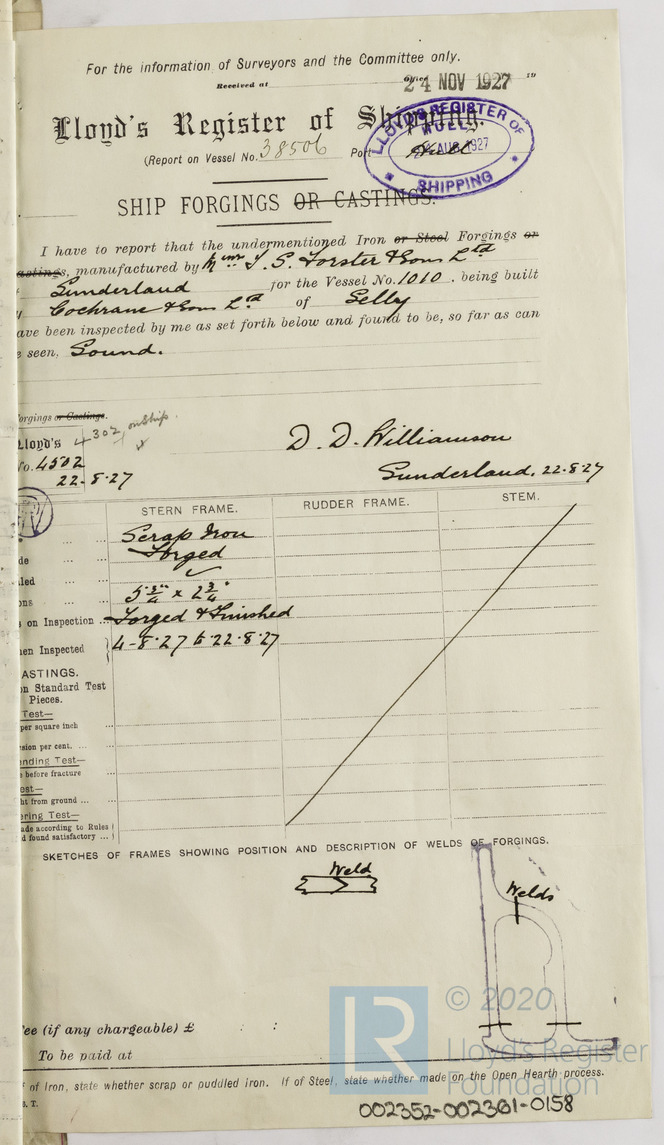 For the information of Surveyors and the Committee only.
Received at Office 24 NOV 1927 19
Lloyd's Register of Shipping.
(Report on Vessel No. 38506 Port Hull
LLOYD'S REGISTER OF
HULL
AUG 1927
SHIPPING
SHIP FORGINGS OR CASTINGS.
I have to report that the undermentioned Iron or Steel Forgings or
astings, manufactured by T. S. Forster & Sons Ltd
Sunderland for the Vessel No. 1010, being built
Cochrane & Sons Ltd of Selby
ave been inspected by me as set forth below and found to be, so far as can
e seen, Sound.
orgings or Castings.
Lloyd's 4302 on Ship
No. 4502
22-8-27
D. D. Williamson
Sunderland, 22-8-27
STERN FRAME. RUDDER FRAME. STEM.
Scrap Iron
de Forged
led ✓
ns 5 3/4" x 2 3/4"
s on Inspection Forged & Finished
en Inspected 4-8-27 to 22-8-27
ASTINGS.
on Standard Test
Pieces.
Test—
per square inch
sion per cent.
ending Test—
s before fracture
est—
ht from ground
ering Test—
ade according to Rules
d found satisfactory
SKETCHES OF FRAMES SHOWING POSITION AND DESCRIPTION OF WELDS OF FORGINGS.
Weld
Welds
Fee (if any chargeable) £ : :
To be paid at
f of Iron, state whether scrap or puddled iron. If of Steel, state whether made on the Open Hearth process.
S. T.
LR
© 2020
Lloyd's Register
Foundation
002352-002361-0158